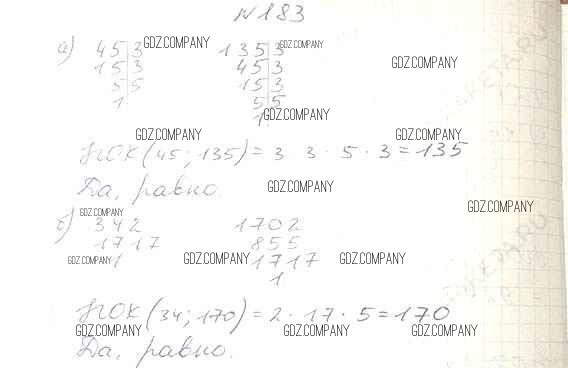 №183
а) 45 3 GDZ.COMPANY 135 3 GDZ.COMPANY
15 3 45 3 GDZ.COMPANY
5 5 15 3
1 5 5
1 GDZ.COMPANY
GDZ.COMPANY GDZ.COMPANY
НОК (45; 135) = 3 · 3 · 5 · 3 = 135
Да, равно. GDZ.COMPANY
GDZ.COMPANY GDZ.COMPANY
б) 34 2 170 2
17 17 85 5
GDZ.COMPANY 1 GDZ.COMPANY 17 17 GDZ.COMPANY
1
НОК (34; 170) = 2 · 17 · 5 = 170
GDZ.COMPANY GDZ.COMPANY GDZ.COMPANY
Да, равно.